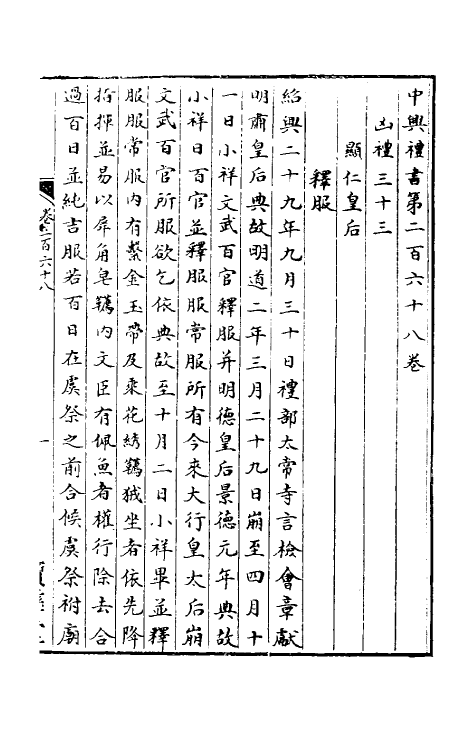 中興禮書第二百六十八卷
凶禮三十三
顯仁皇后
釋服
紹興二十九年九月三十日禮部太常寺言檢會章獻
明肅皇后典故明道二年三月二十九日崩至四月十
一日小祥文武百官釋服并明德皇后景德元年典故
小祥日百官並釋服服常服所有今來大行皇太后崩
文武百官所服欲乞依典故至十月二日小祥畢並釋
服服常服内有繫金玉帶及乘花綉韉狨坐者依先降
指揮並易以犀角皂韉内文臣有佩魚者權行除去合
過百日並純吉服若百日在虞祭之前合候虞祭祔廟
卷二百六十八
一